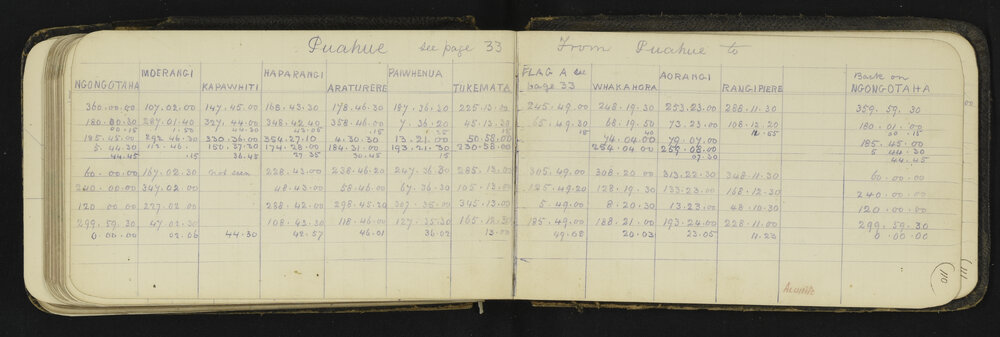 Puahue see page 33 From Puahue to
NGONGOTAHA MOERANGI KAPAWHITI HAPARANGI ARATURERE PAIWHENUA TUKEMATA FLAG A see page 33 WHAKAHORA AORANGI RANGIPIERE Back on NGONGOTAHA
360.00.00 107.02.00 147.45.00 168.43.30 178.46.30 187.36.20 225.13.00 245.49.00 248.19.30 253.23.00 288.11.30 359.59.30
180.00.30 287.01.40 327.44.00 348.42.40 358.46.00 7.36.20 45.13.20 65.49.30 68.19.50 73.23.00 108.12.20 180.01.00
00.15 1.50 44.30 43.05 .15 1.35 15 40 00.15
185.45.00 292.46.30 354.27.10 4.30.30 13.21.00 50.58.00 74.04.00 79.07.00 185.45.00
5.44.30 150.37.20 174.28.00 184.31.00 230.58.00 254.04.00 259.08.00 5.44.30
44.45 .15 36.45 27.35 30.45 15 07.30 44.45
60.00.00 167.02.30 not seen 228.43.00 238.46.20 247.36.30 285.13.00 305.49.00 308.20.00 313.22.30 348.11.30 60.00.00
240.00.00 347.02.00 48.43.00 58.46.00 67.36.30 105.13.00 125.49.20 128.19.30 133.23.00 168.12.30 240.00.00
120.00.00 227.02.00 288.42.00 298.45.20 307.35.00 345.13.00 5.49.00 8.20.30 13.23.00 48.10.30 120.00.00
299.59.30 47.02.30 108.43.30 118.46.00 127.35.30 165.12.30 185.49.00 188.21.00 193.24.00 228.11.00 299.59.30
0.00.00 02.06 44.30 42.57 46.01 36.02 13.00 49.08 20.03 23.05 0.00.00
110
111